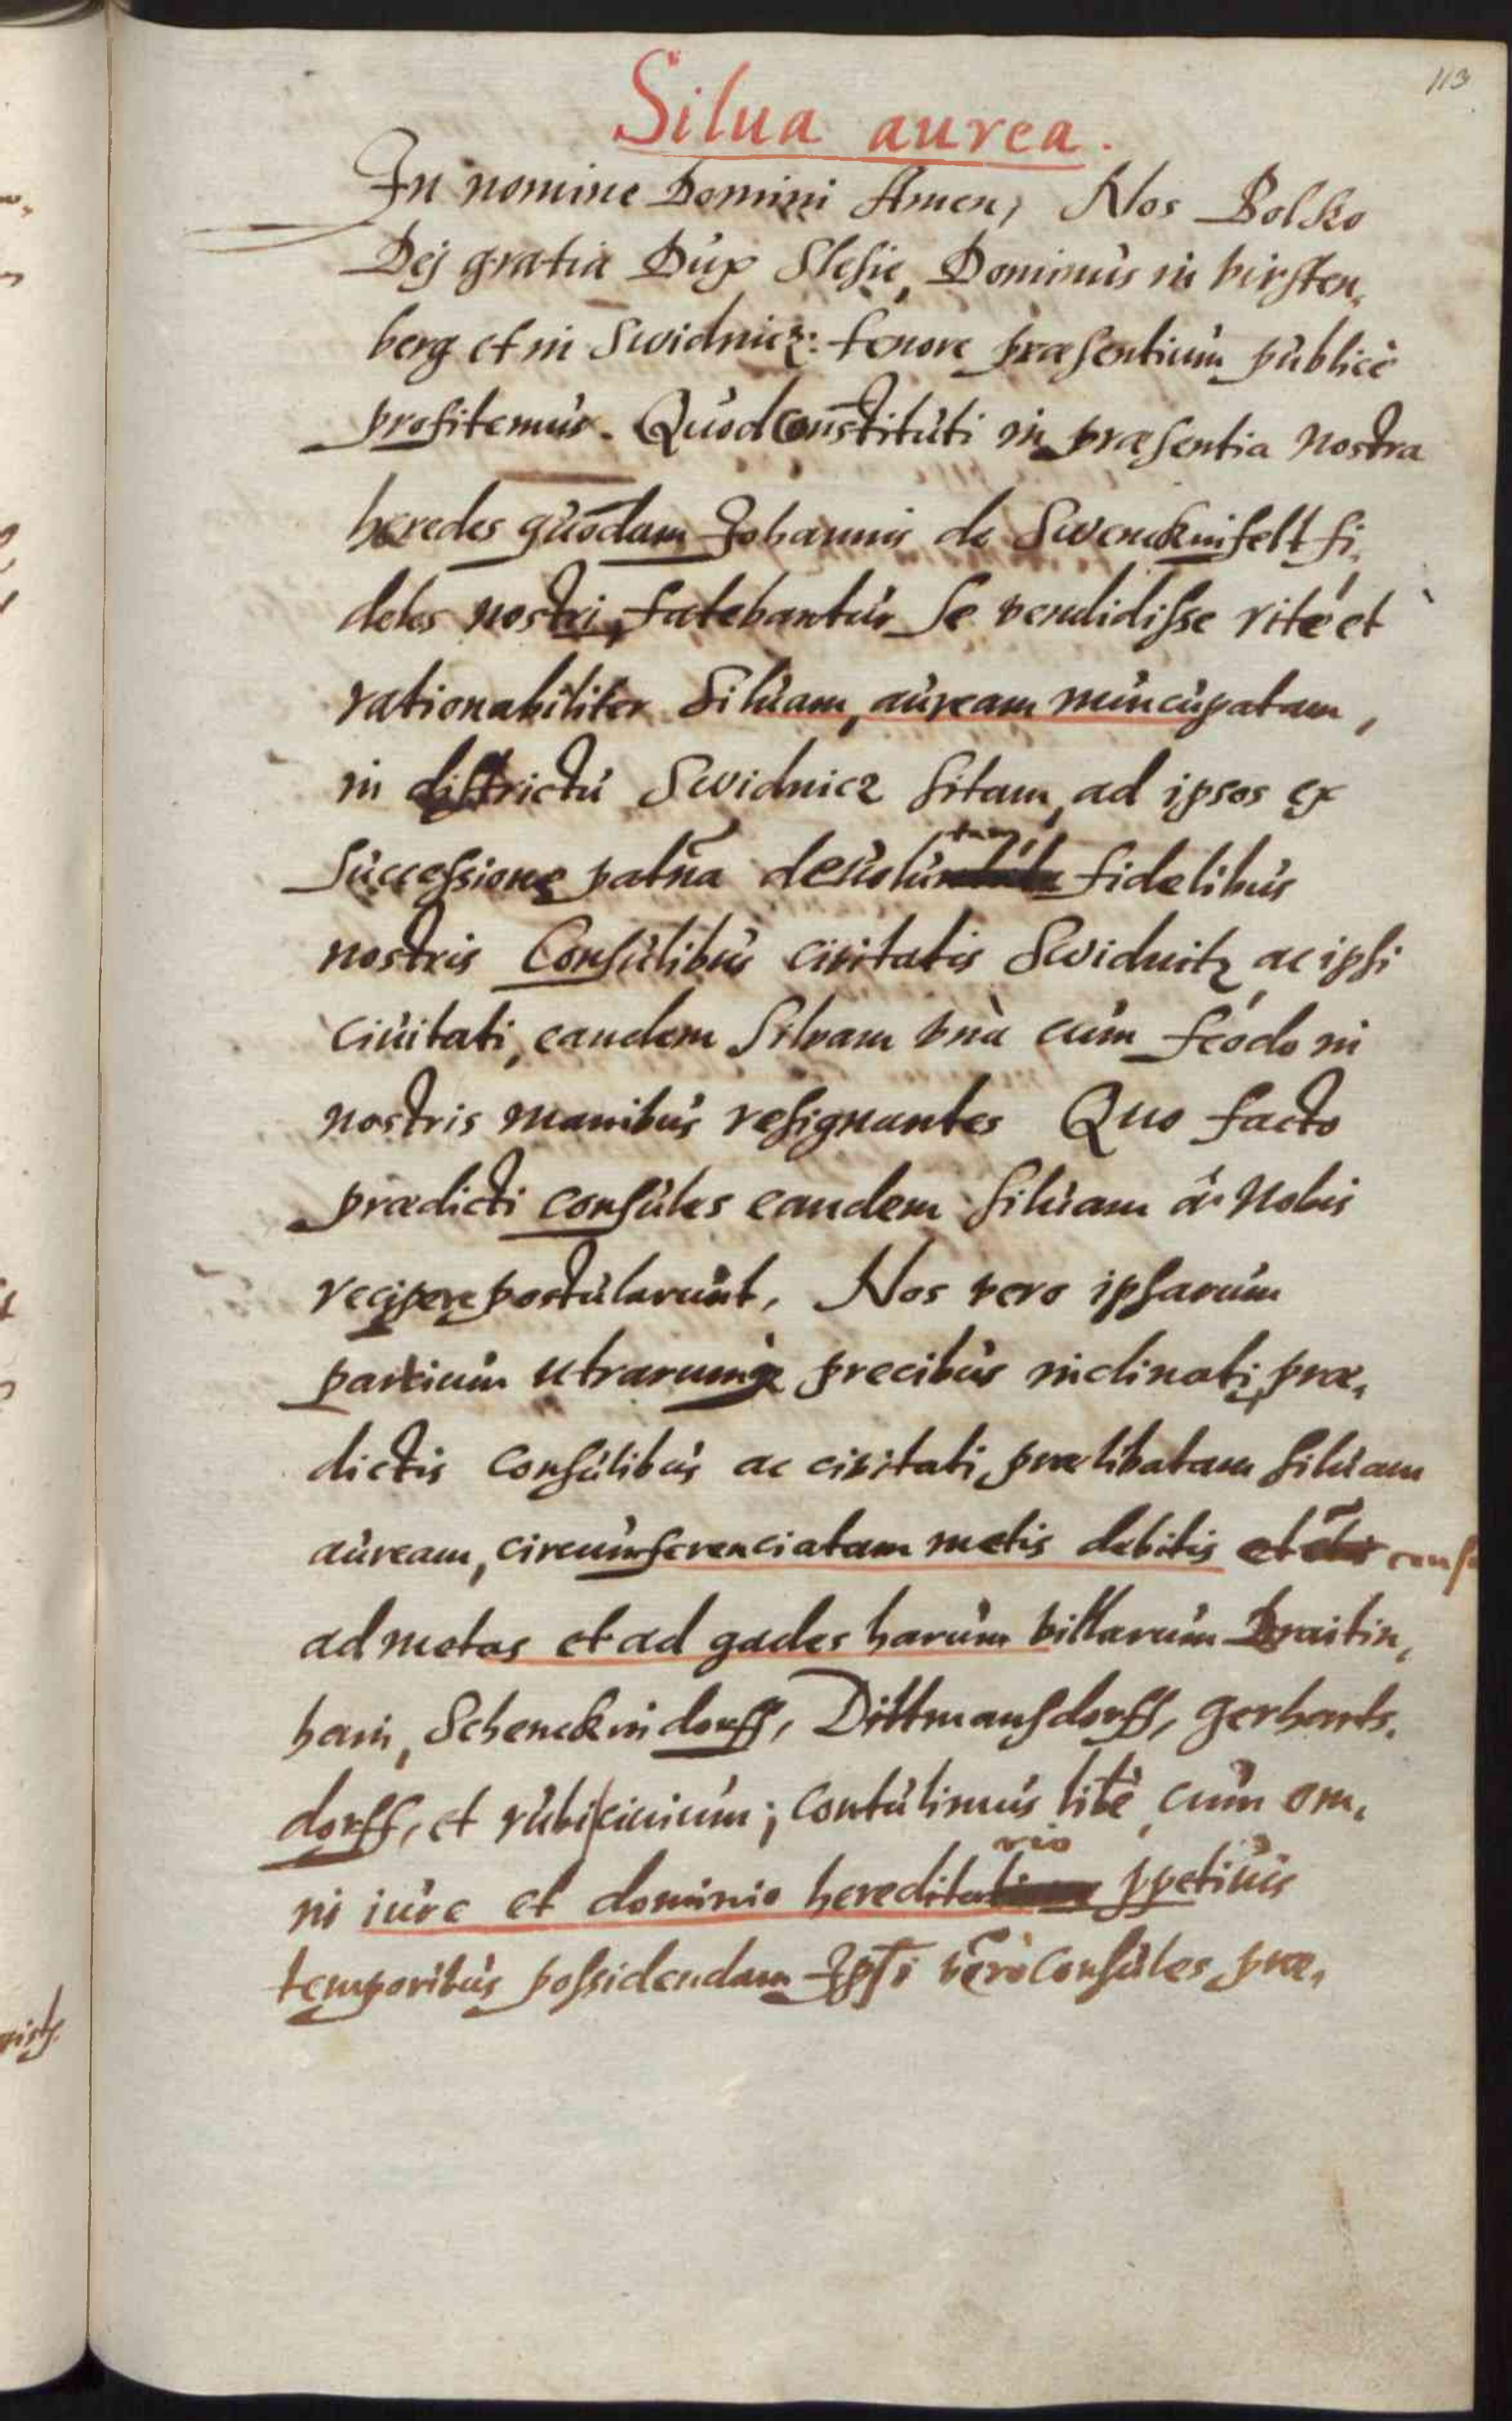 113
Silua aurea.
In nomine Domini Amen, Nos Bolko
Dej gratia Dux Slesie, Dominus in virsten,
berg et in Swidnicz: tenore præsentium publicè
profitemur. Quod constituti in præsentia nostra
heredes quōdam Johannis de Swenckinfelt fi,
deles nostri, fatebantur se vendidisse ritè et
rationabiliter siluam, auream nuncupatam,
in districtu Swidnicz sitam, ad ipsos ex
successione patña deuolutam, fidelibus
nostris Consulibus civitatis Swidnitz ac ipsi
ciuitati, eandem Silvam vnà cum feodo in
nostris manibus resignantes Quo facto
prædicti consules eandem siluam à Nobis
recipere postularunt, Nos vero ipsarum
partium utrarumq precibus inclinati, præ,
dictis consulibus ac civitati prælibatam siluam
auream, circumferenciatam metis debitis et
ad metas et ad gades harum villarum Braitin,
hain, Schenckindorff, Dittmansdorff, gerharts,
dorff, et rubicinium; contulimus litē cum om,
ni iure et dominio hereditario ppetuis
temporibus possidendam Ipsi vērò consules præ,